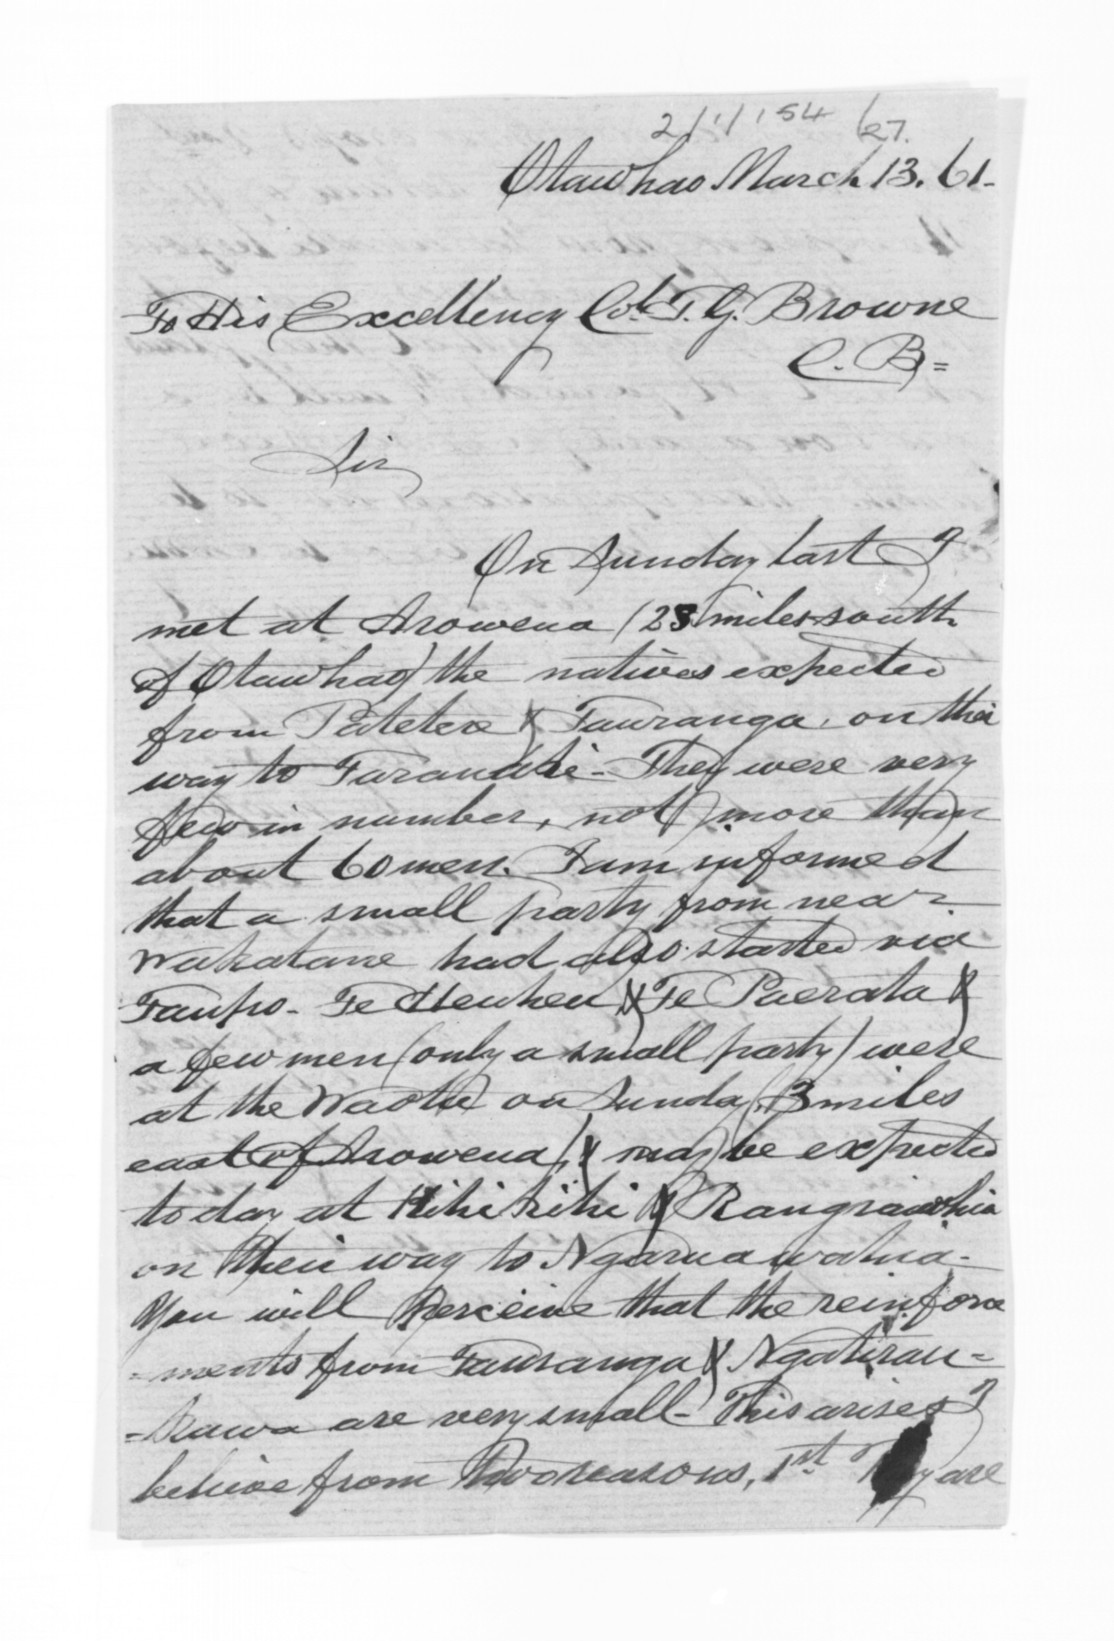 2/1/154 /27.
Otawhao March 13. 61-
To His Excellency Col. T. G. Browne
C. B=
Sir
On Sunday last I
met at Arowena (23 miles south
of Otawhao) the natives expected
from Patetere & Tauranga, on their
way to Taranaki - They were very
few in number, not more than
about 60 men. I am informed
that a small party from near
Wakatane had also started via
Taupo - Te Heuheu & Te Paerata &
a few men (only a small party) were
at the Waotu on Sunday (13 miles
east of Arowena) & may be expected
to day at Kihikihi & Rangiaowhia
on their way to Ngaruawahia -
You will perceive that the reinforce
=ments from Tauranga & Ngatirau=
=kawa are very small - This arises I
believe from two reasons, 1st They are